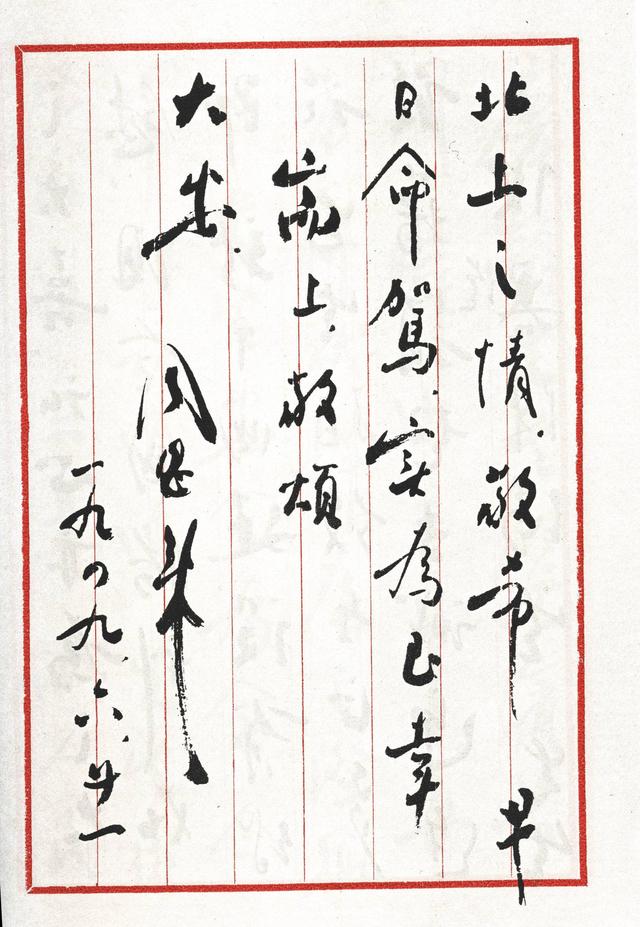 北上之情.敬希 早
日命駕.实為至幸
耑上.敬頌
大安.
周恩来
一九四九、六、廿一